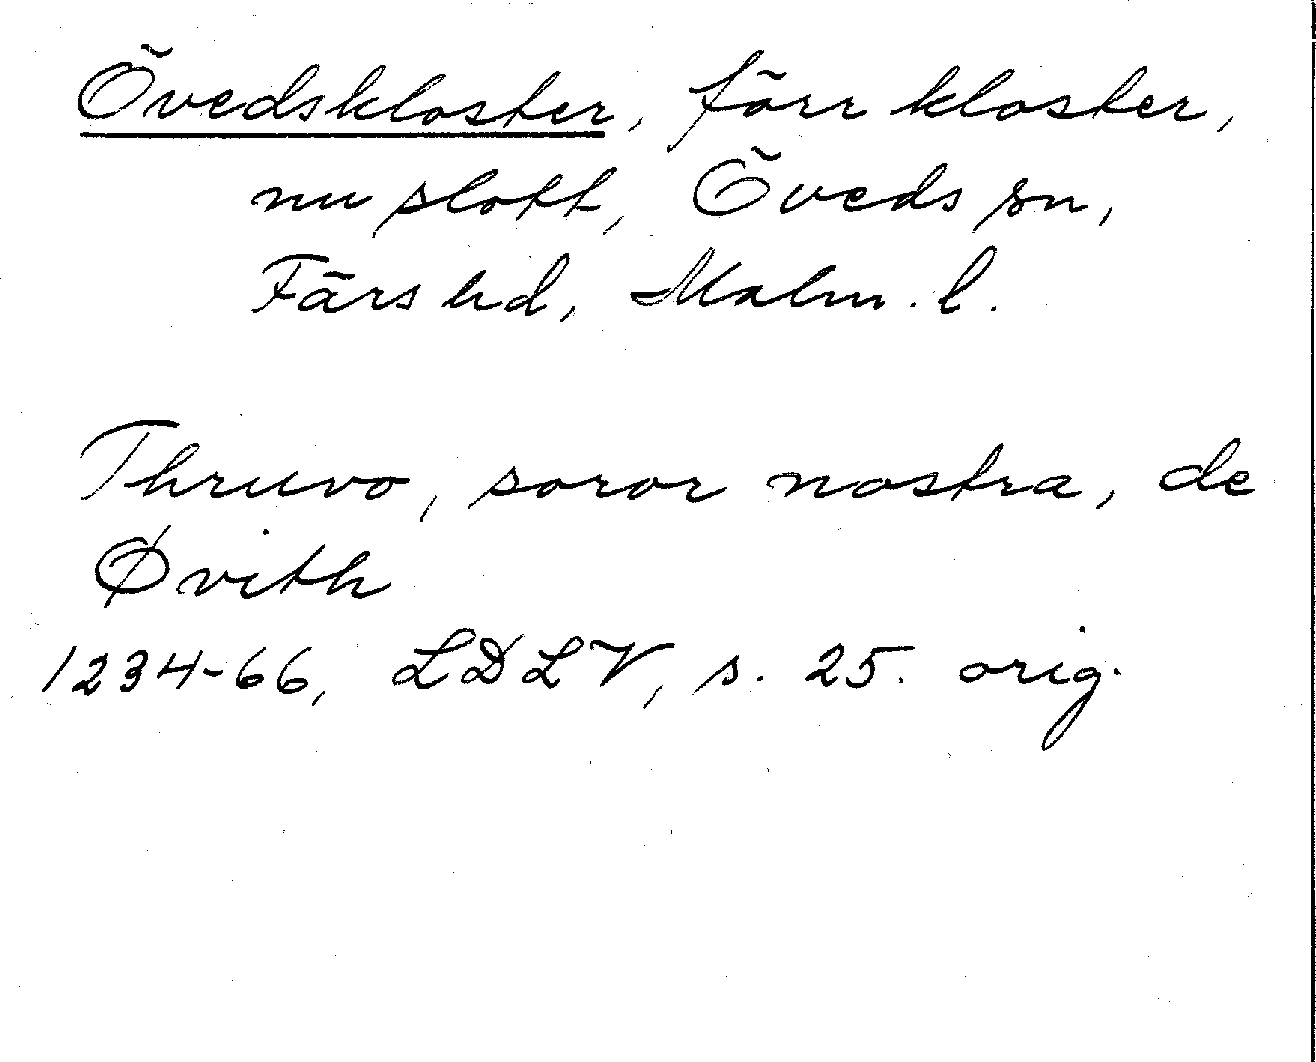 Övedskloster, förr kloster,
nu slott, Öveds sn,
Färs hd, Malm. l.
Thruvo, soror nostra, de
Øvith
1234-66, LDLV, s. 25. orig.